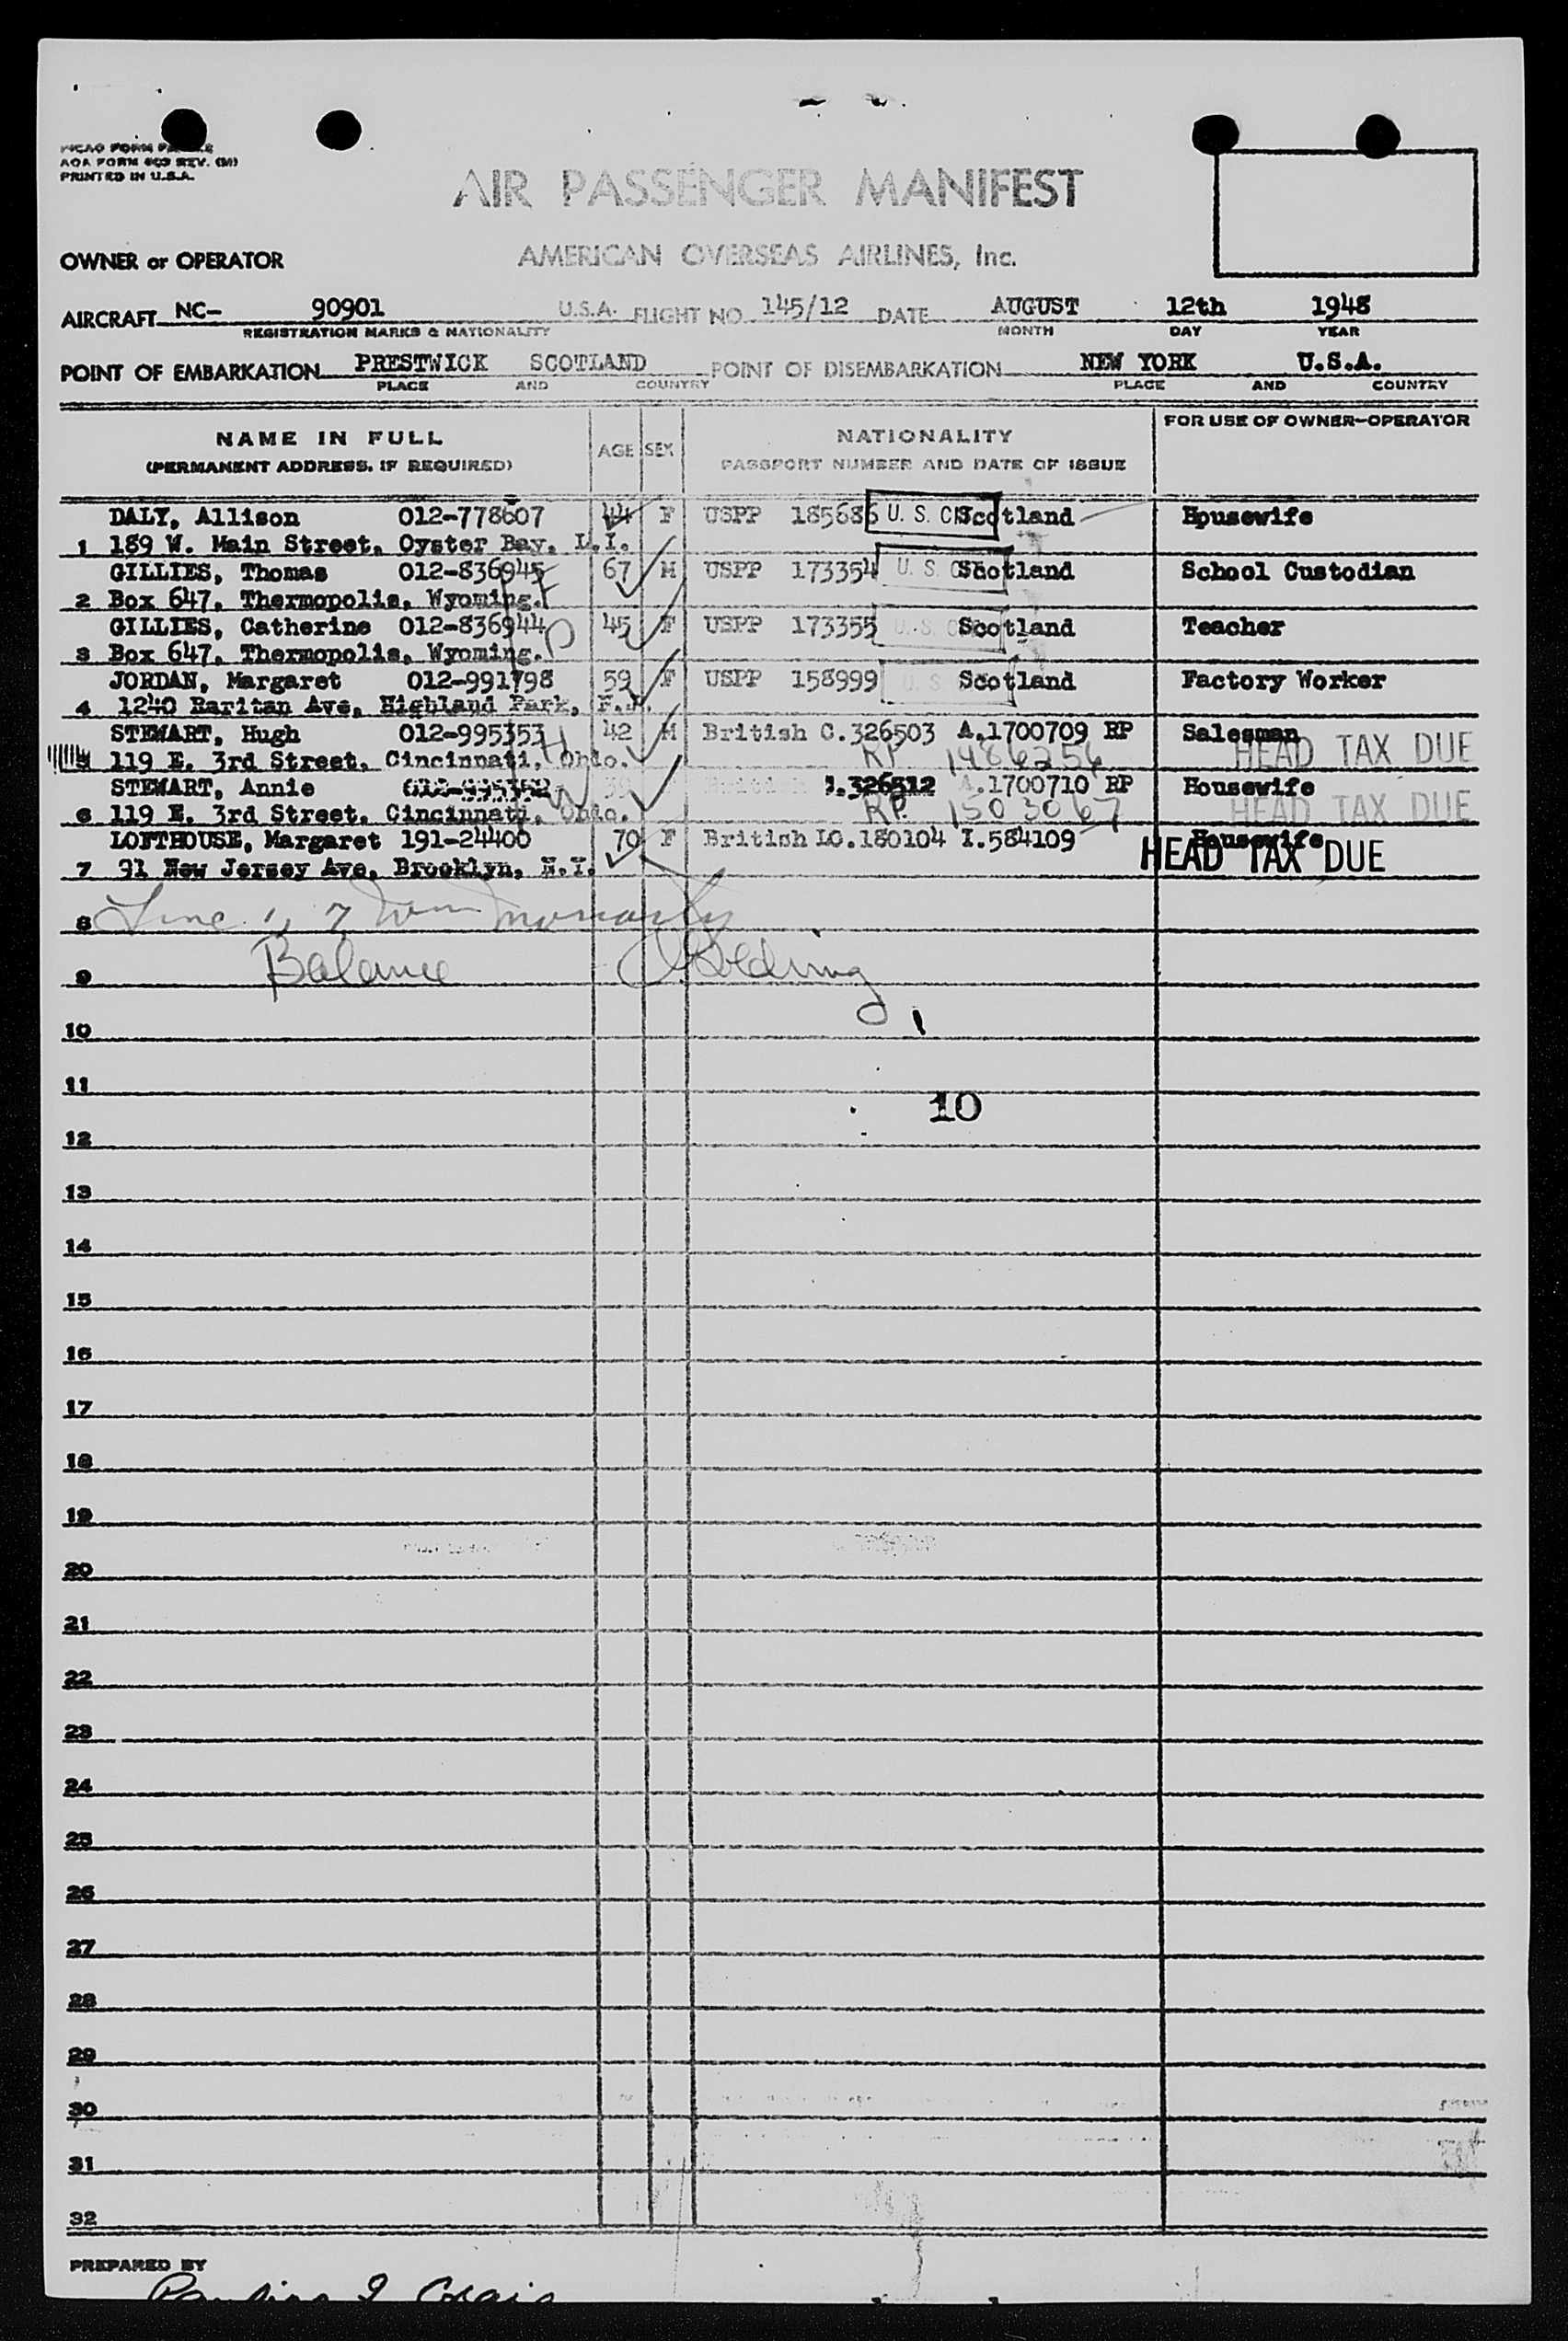 AOA FORM 603 REV. (M)
PRINTED IN U.S.A.
AIR PASSENGER MANIFEST
OWNER or OPERATOR AMERICAN OVERSEAS AIRLINES, Inc.
AIRCRAFT NC- 90901 U.S.A. FLIGHT NO. 145/12 DATE AUGUST 12th 1948
REGISTRATION MARKS & NATIONALITY MONTH DAY YEAR
POINT OF EMBARKATION PRESTWICK SCOTLAND POINT OF DISEMBARKATION NEW YORK U.S.A.
PLACE AND COUNTRY PLACE AND COUNTRY
NAME IN FULL AGE SEX NATIONALITY FOR USE OF OWNER-OPERATOR
(PERMANENT ADDRESS, IF REQUIRED) PASSPORT NUMBER AND DATE OF ISSUE
DALY, Allison 012-778607 44 F USPP 185686 U. S. C Scotland Housewife
1 189 W. Main Street, Oyster Bay, L.I.
GILLIES, Thomas 012-836945 67 M USPP 173354 U. S. C Scotland School Custodian
2 Box 647, Thermopolis, Wyoming.
GILLIES, Catherine 012-836944 45 F USPP 173355 U. S. C Scotland Teacher
3 Box 647, Thermopolis, Wyoming.
JORDAN, Margaret 012-991798 59 F USPP 158999 U. S. Scotland Factory Worker
4 1240 Raritan Ave, Highland Park,
STEWART, Hugh 012-995353 42 M British C.326503 A.1700709 RP Salesman
119 E. 3rd Street, Cincinnati, Ohio. RP 1486256 HEAD TAX DUE
STEWART, Annie 39 .326512 .1700710 RP Housewife
6 119 E. 3rd Street, Cincinnati, Ohio. RP 1503067 HEAD TAX DUE
LOFTHOUSE, Margaret 191-24400 70 F British LO.180104 I.584109 Housewife
7 91 New Jersey Ave, Brooklyn, N.Y. HEAD TAX DUE
8 Line 1, 7
9 Balance Golding
10
11
10
12
13
14
15
16
17
18
19
20
21
22
23
24
25
26
27
28
29
30
31
32
PREPARED BY